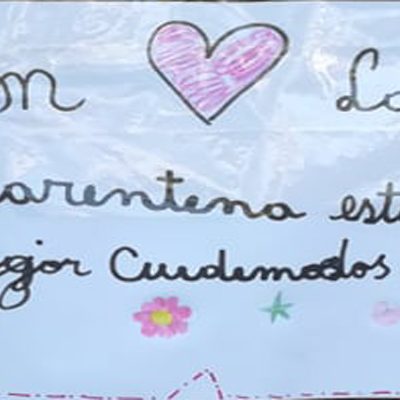 on La
arentena est
ejor Cuidemosdos